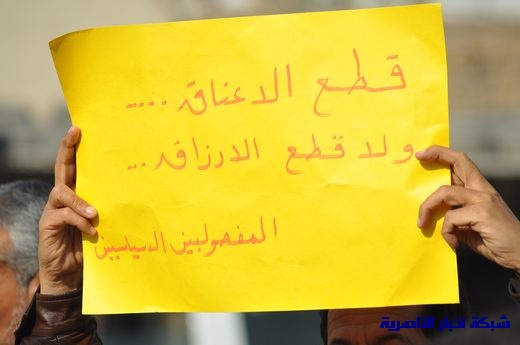 قطع الاعناق ....
ولا قطع الارزاق ...
المفصوليين السياسيين
شبكة اخبار الناصرية